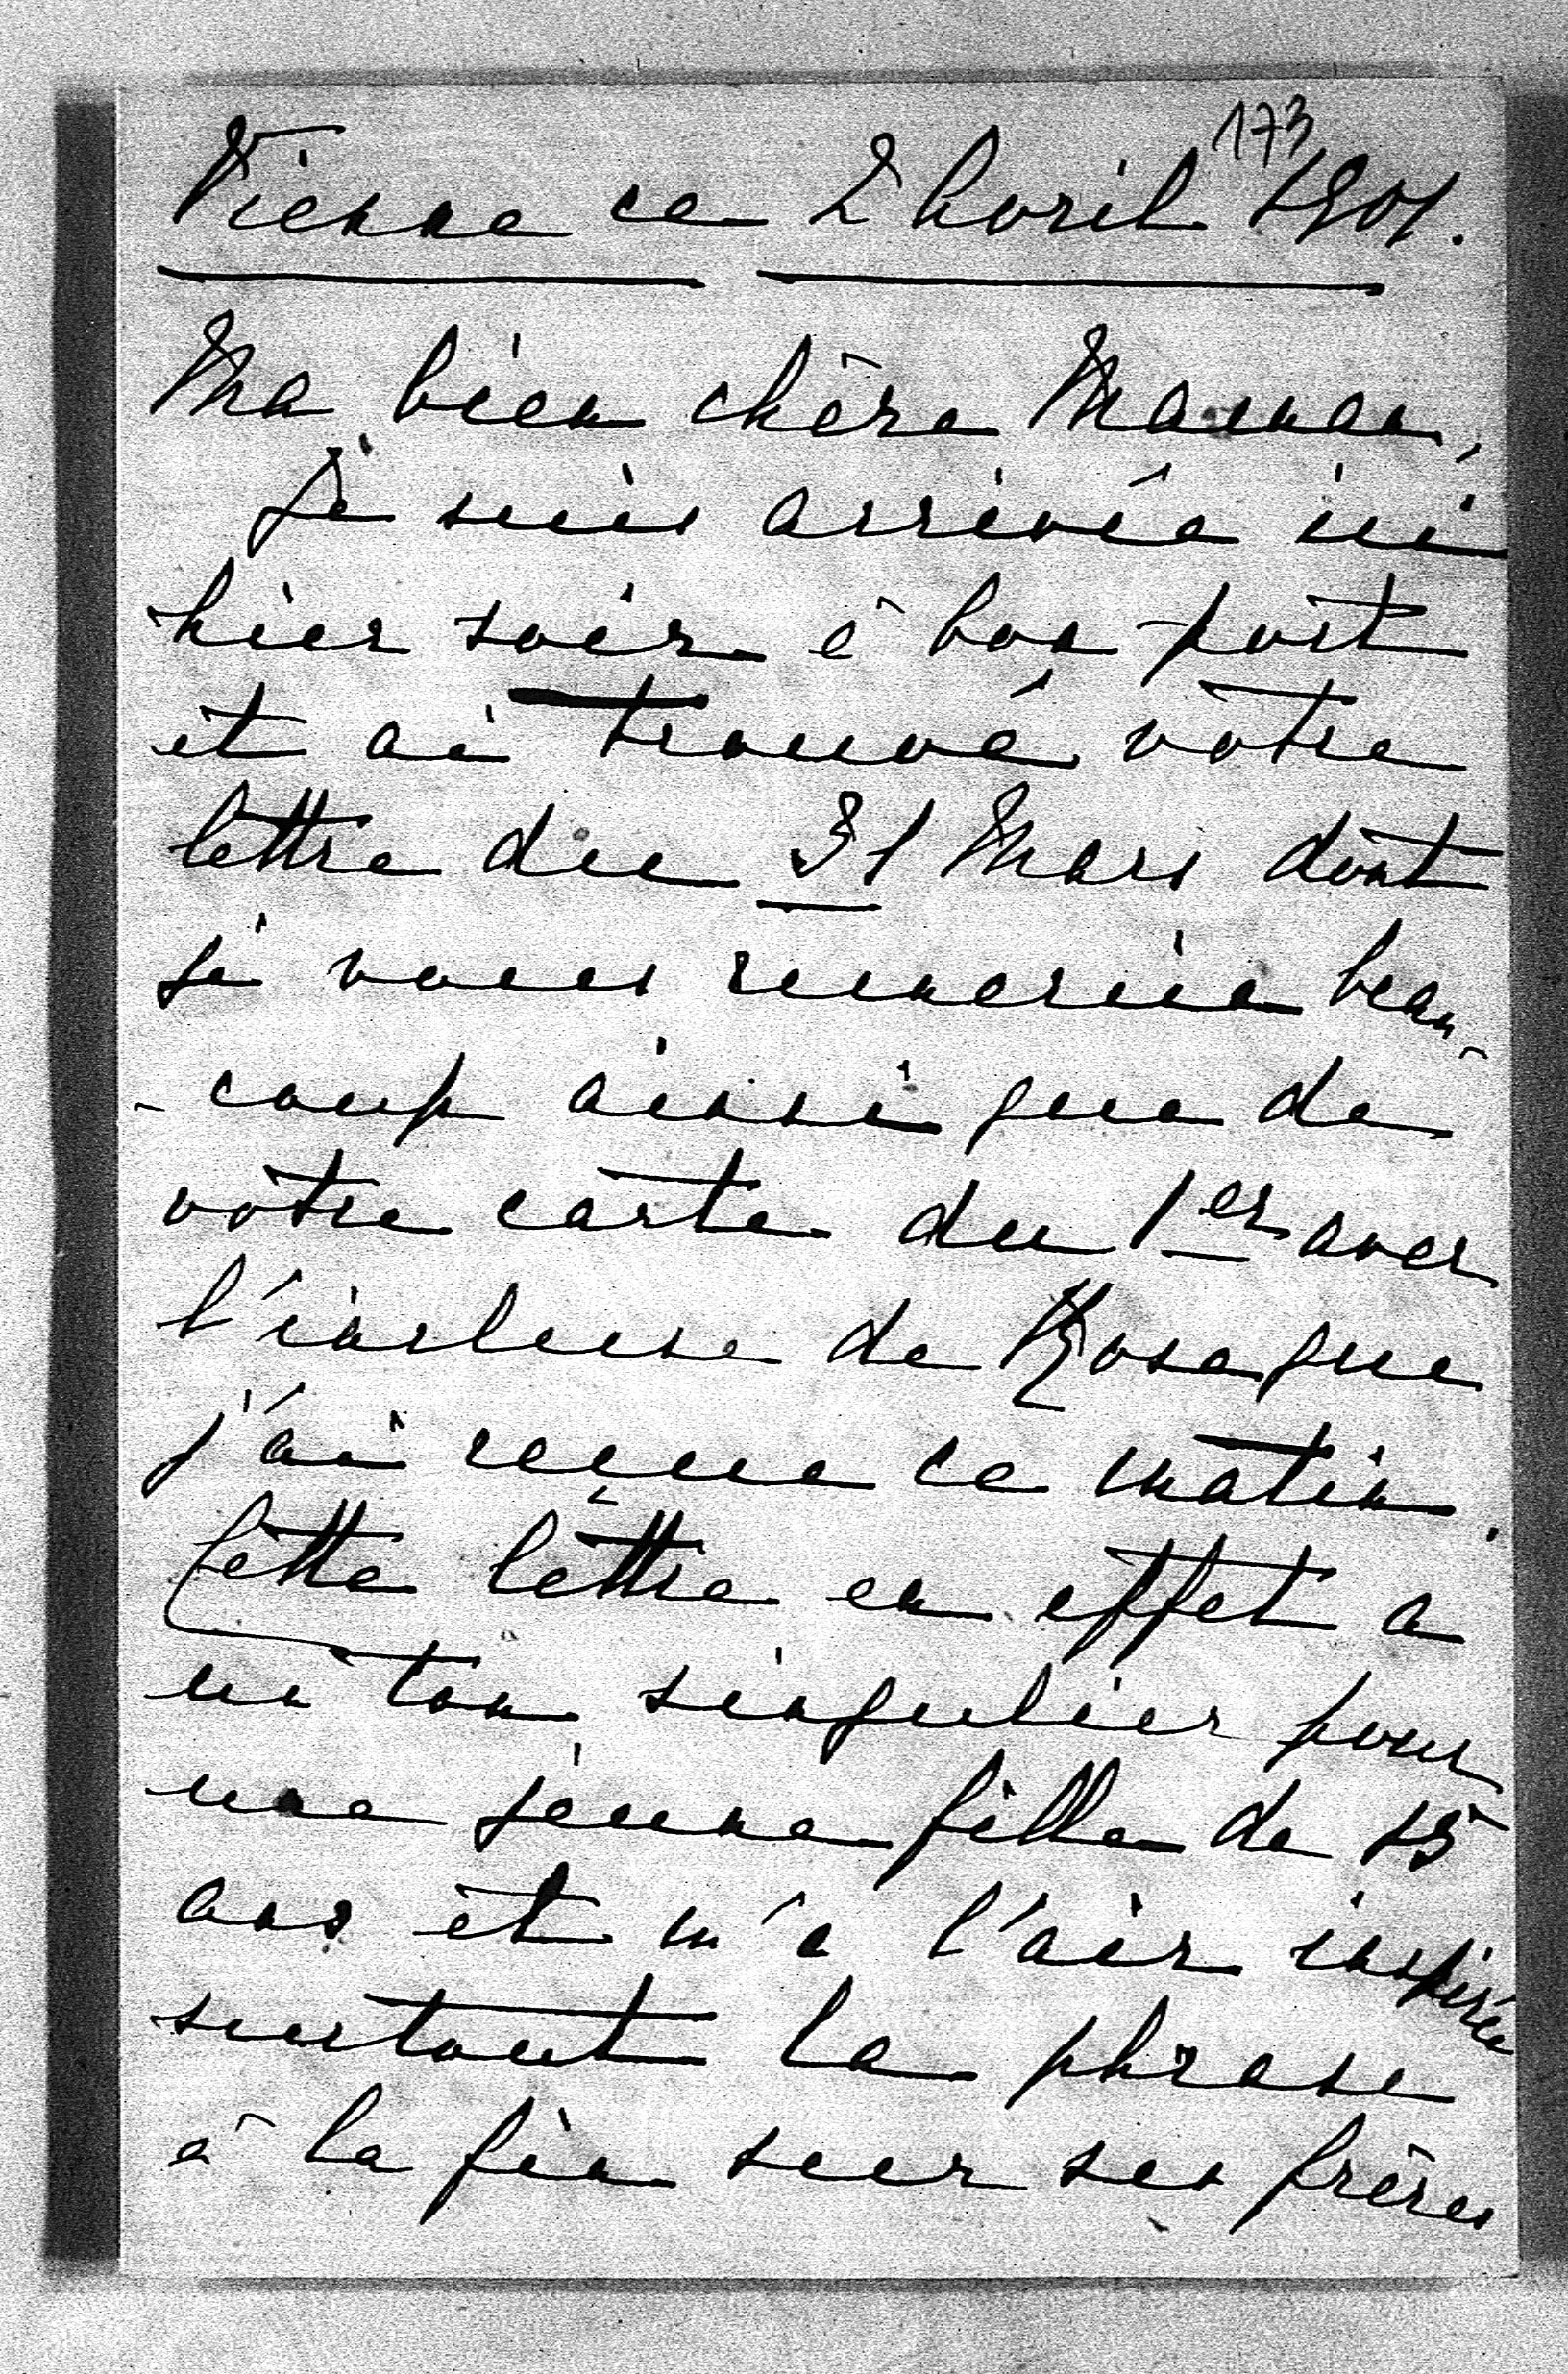 173
Vienne ce 2 Avril 1901.
Ma bien chère Maman,
Je suis arrivée ici
hier soir à bon port
et ai trouvé votre
lettre du 31 Mars dont
je vous remercie beau-
-coup ainsi que de
votre carte du 1er avec
l'incluse de Rosa que
j'ai reçue ce matin.
Cette lettre en effet a
un ton singulier pour
une jeune fille de 15
ans et m'a l'air inspirée
surtout la phrase
à la fin sur ses frères